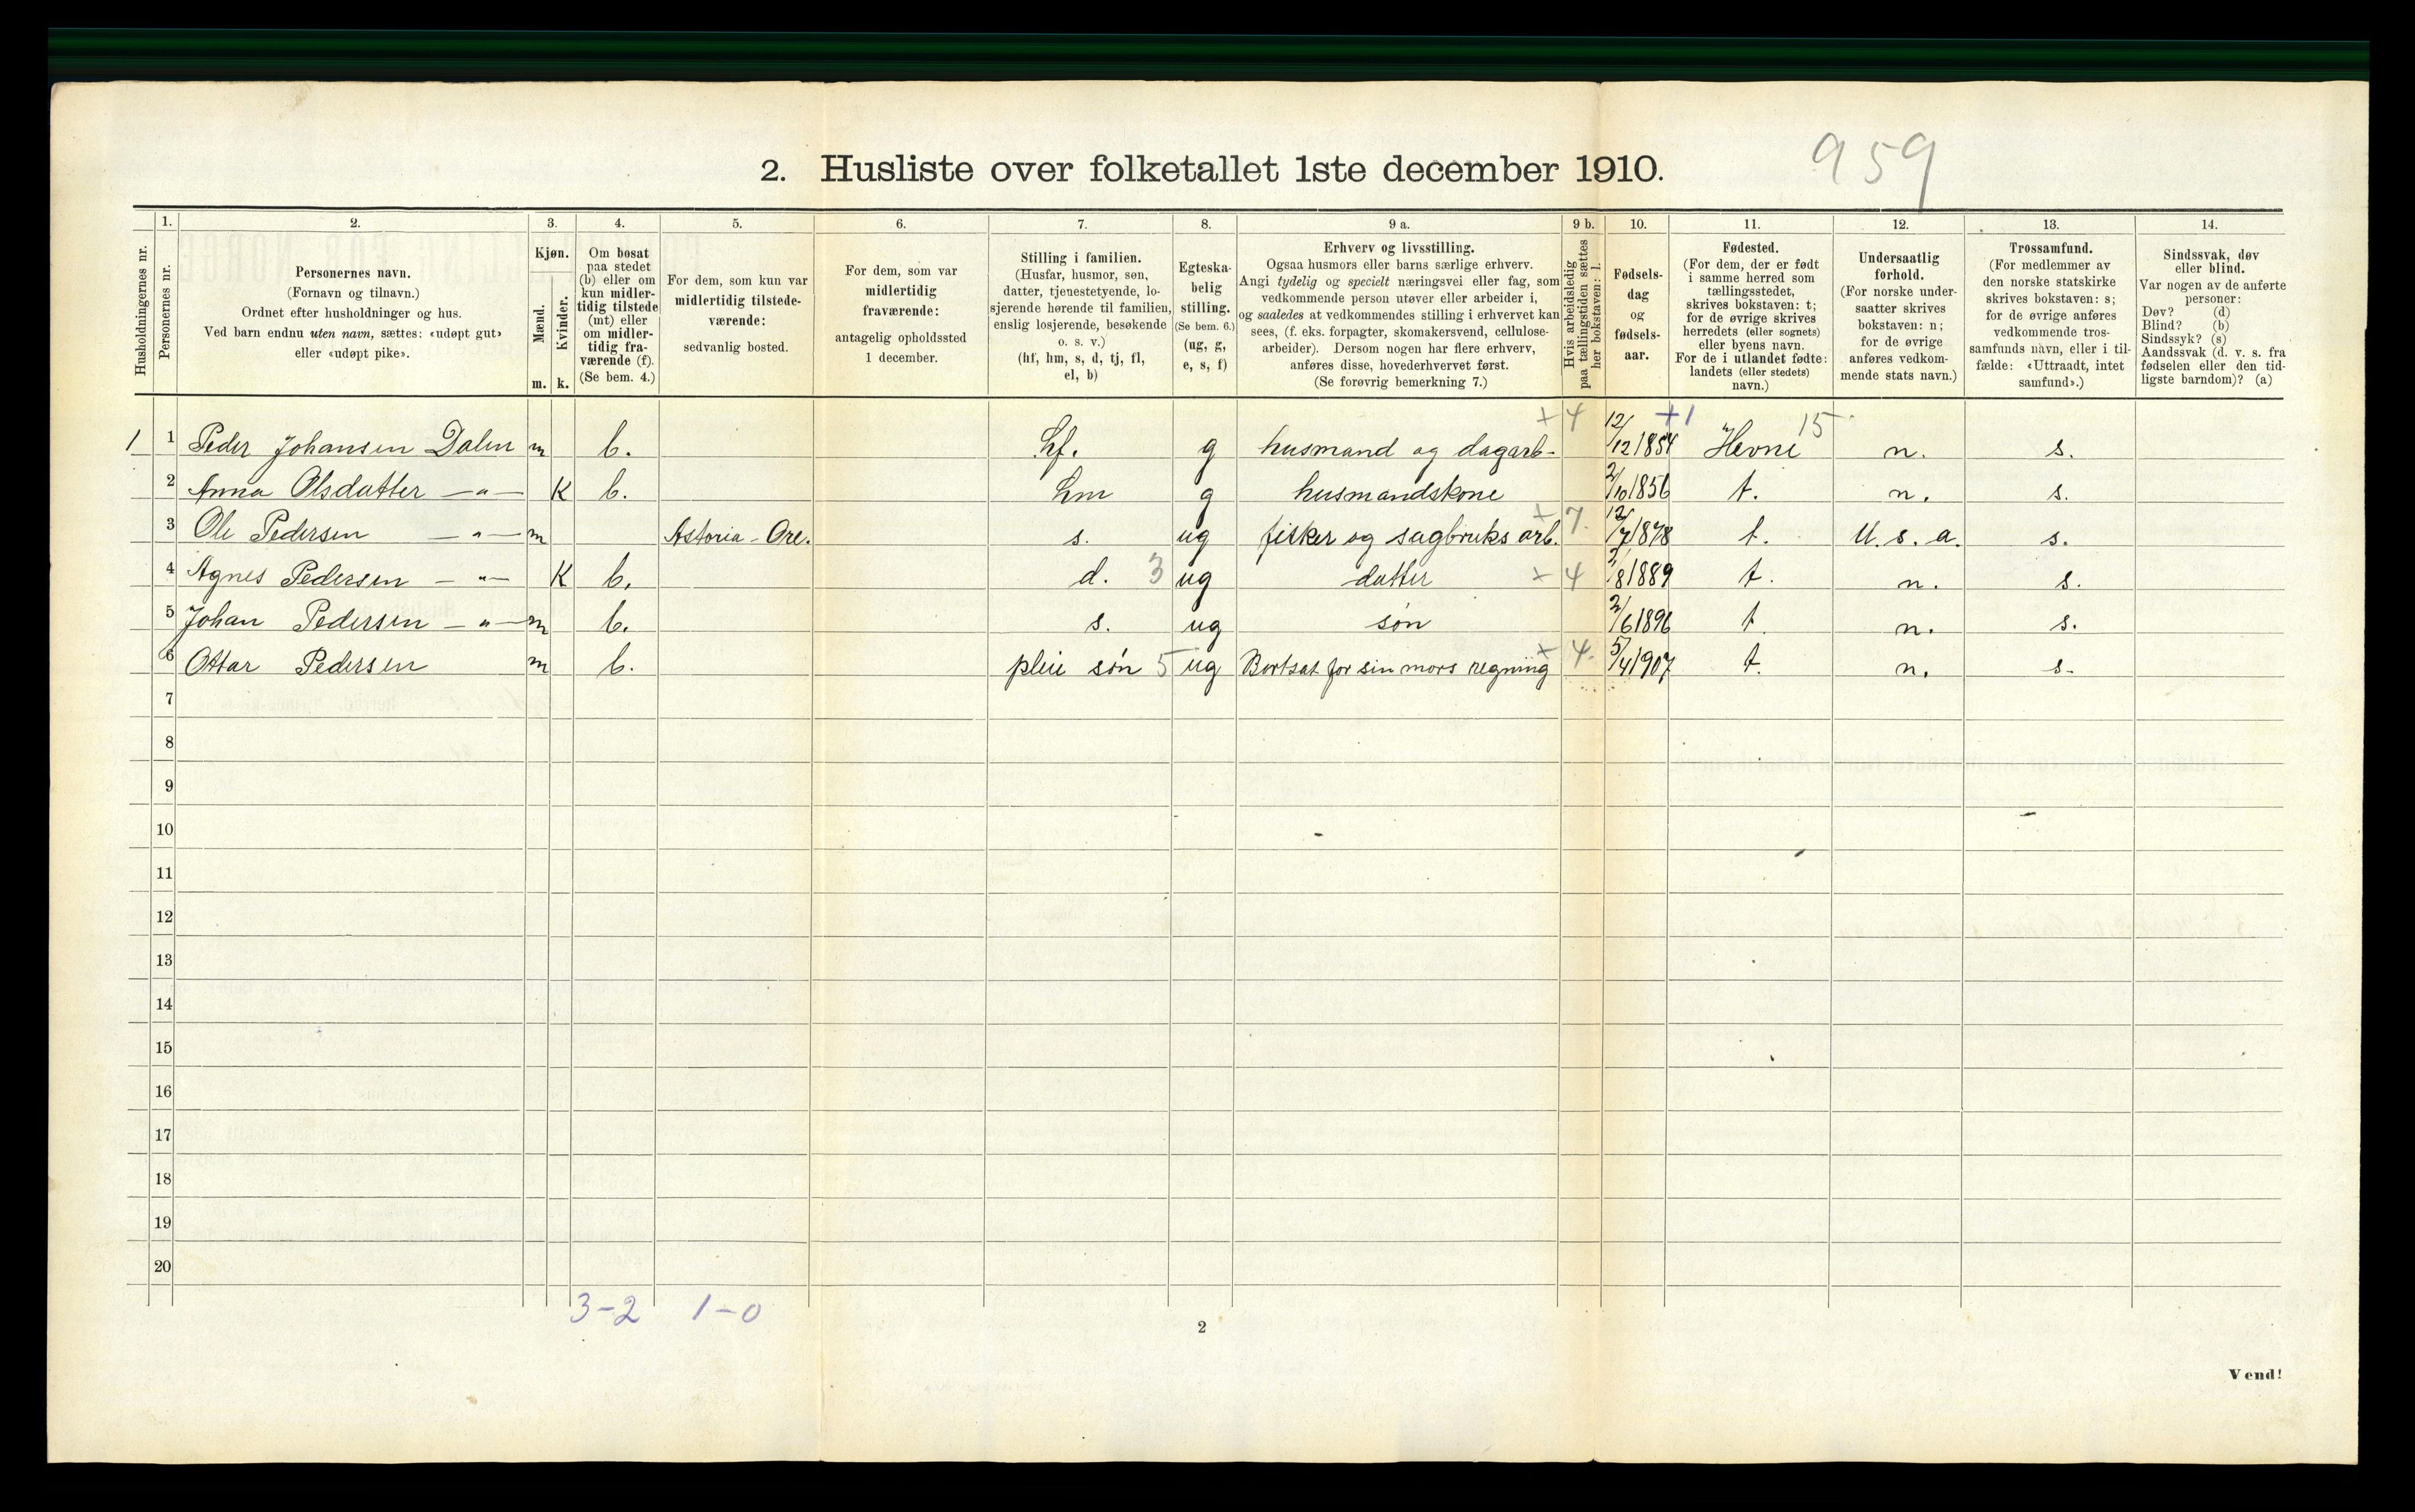 2. Husliste over folketallet 1ste december 1910.
959
Husholdningernes nr.
1.
Personernes nr.
2.
Personernes navn.
(Fornavn og tilnavn.)
Ordnet efter husholdninger og hus.
Ved barn endnu uten navn, sættes: «udøpt gut»
eller «udøpt pike».
3.
Kjøn.
Mænd.
Kvinder.
m. k.
4.
Om bosat
paa stedet
(b) eller om
kun midler-
tidig tilstede
(mt) eller
om midler-
tidig fra-
værende (f).
(Se bem. 4.)
5.
For dem, som kun var
midlertidig tilstede-
værende:
sedvanlig bosted.
6.
For dem, som var
midlertidig
fraværende:
antagelig opholdssted
1 december.
7.
Stilling i familien.
(Husfar, husmor, søn,
datter, tjenestetyende, lo-
sjerende hørende til familien,
enslig losjerende, besøkende
o. s. v.)
(hf, hm, s, d, tj, fl,
el, b)
8.
Egteska-
belig
stilling.
(Se bem. 6.)
(ug, g,
e, s, f)
9 a.
Erhverv og livsstilling.
Ogsaa husmors eller barns særlige erhverv.
Angi tydelig og specielt næringsvei eller fag, som
vedkommende person utøver eller arbeider i,
og saaledes at vedkommendes stilling i erhvervet kan
sees, (f. eks. forpagter, skomakersvend, cellulose-
arbeider). Dersom nogen har flere erhverv,
anføres disse, hovederhvervet først.
(Se forøvrig bemerkning 7.)
9 b.
Hvis arbeidsledig
paa tællingstiden sættes
her bokstaven: l.
10.
Fødsels-
dag
og
fødsels-
aar.
11.
Fødested.
(For dem, der er født
i samme herred som
tællingsstedet,
skrives bokstaven: t;
for de øvrige skrives
herredets (eller sognets)
eller byens navn.
For de i utlandet fødte:
landets (eller stedets)
navn.)
12.
Undersaatlig
forhold.
(For norske under-
saatter skrives
bokstaven: n;
for de øvrige
anføres vedkom-
mende stats navn.)
13.
Trossamfund.
(For medlemmer av
den norske statskirke
skrives bokstaven: s;
for de øvrige anføres
vedkommende tros-
samfunds navn, eller i til-
fælde: «Uttraadt, intet
samfund».)
14.
Sindssvak, døv
eller blind.
Var nogen av de anførte
personer:
Døv? (d)
Blind? (b)
Sindssyk? (s)
Aandssvak (d. v. s. fra
fødselen eller den tid-
ligste barndom)? (a)
1 1 Peder Johansen Dalen m b. hf. g husmand og dagarb. + 4 12/12 1854 +1 Hevne 15 n. s.
2 Anna Olsdatter —"— K b. hm g husmandskone 2/10 1856 t. n. s.
3 Ole Pedersen —"— m Astoria - Ore. s. ug fisker og sagbruks arb. + 7. 12/7 1878 t. U. s. a. s.
4 Agnes Pedersen —"— K b. d. 3 ug datter + 4 /8 1889 t. n. s.
5 Johan Pedersen —"— m b. s. ug søn 2/6 1896 t n. s.
6 Ottar Pedersen m b. pleie søn 5 ug Bortsat for sin mors regning + 4. 5/4 1907 t. n. s.
7
8
9
10
11
12
13
14
15
16
17
18
19
20
3-2 1-0
2
Vend!